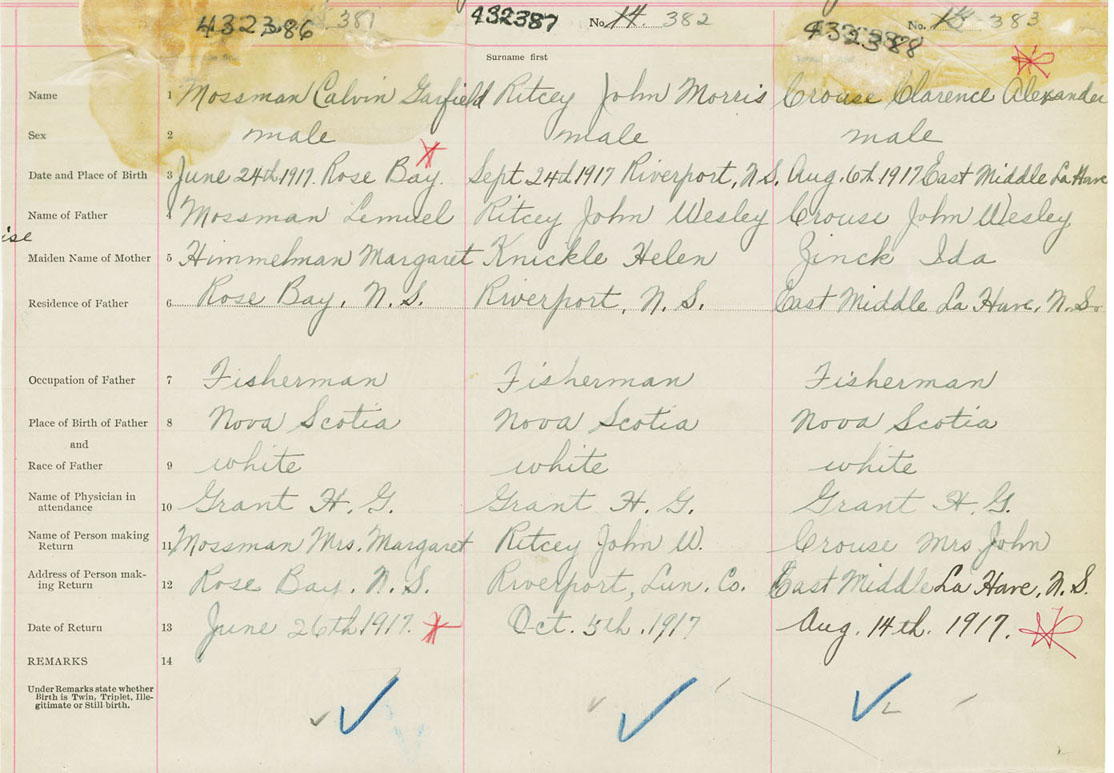 432386 381 432387 No. 14. 382 432388 No. 15 383
Surname first
Name 1 Mossman Calvin Garfield Ritcey John Morris Crouse Clarence Alexander
Sex 2 male male male
Date and Place of Birth 3 June 24th 1917. Rose Bay. Sept 24th 1917 Riverport, N.S. Aug. 6th 1917 East Middle La Have
Name of Father 4 Mossman Lemuel Ritcey John Wesley Crouse John Wesley
ise
Maiden Name of Mother 5 Himmelman Margaret Knickle Helen Zinck Ida
Residence of Father 6 Rose Bay, N.S. Riverport, N.S. East Middle La Have, N.S.
Occupation of Father 7 Fisherman Fisherman Fisherman
Place of Birth of Father 8 Nova Scotia Nova Scotia Nova Scotia
and
Race of Father 9 white white white
Name of Physician in
attendance 10 Grant H. G. Grant H. G. Grant H. G.
Name of Person making
Return 11 Mossman Mrs. Margaret Ritcey John W. Crouse Mrs John
Address of Person mak-
ing Return 12 Rose Bay. N.S. Riverport, Lun. Co. East Middle La Have, N.S.
Date of Return 13 June 26th 1917. Oct. 5th. 1917 Aug. 14th. 1917.
REMARKS 14
Under Remarks state whether
Birth is Twin, Triplet, Ille-
gitimate or Still-birth.